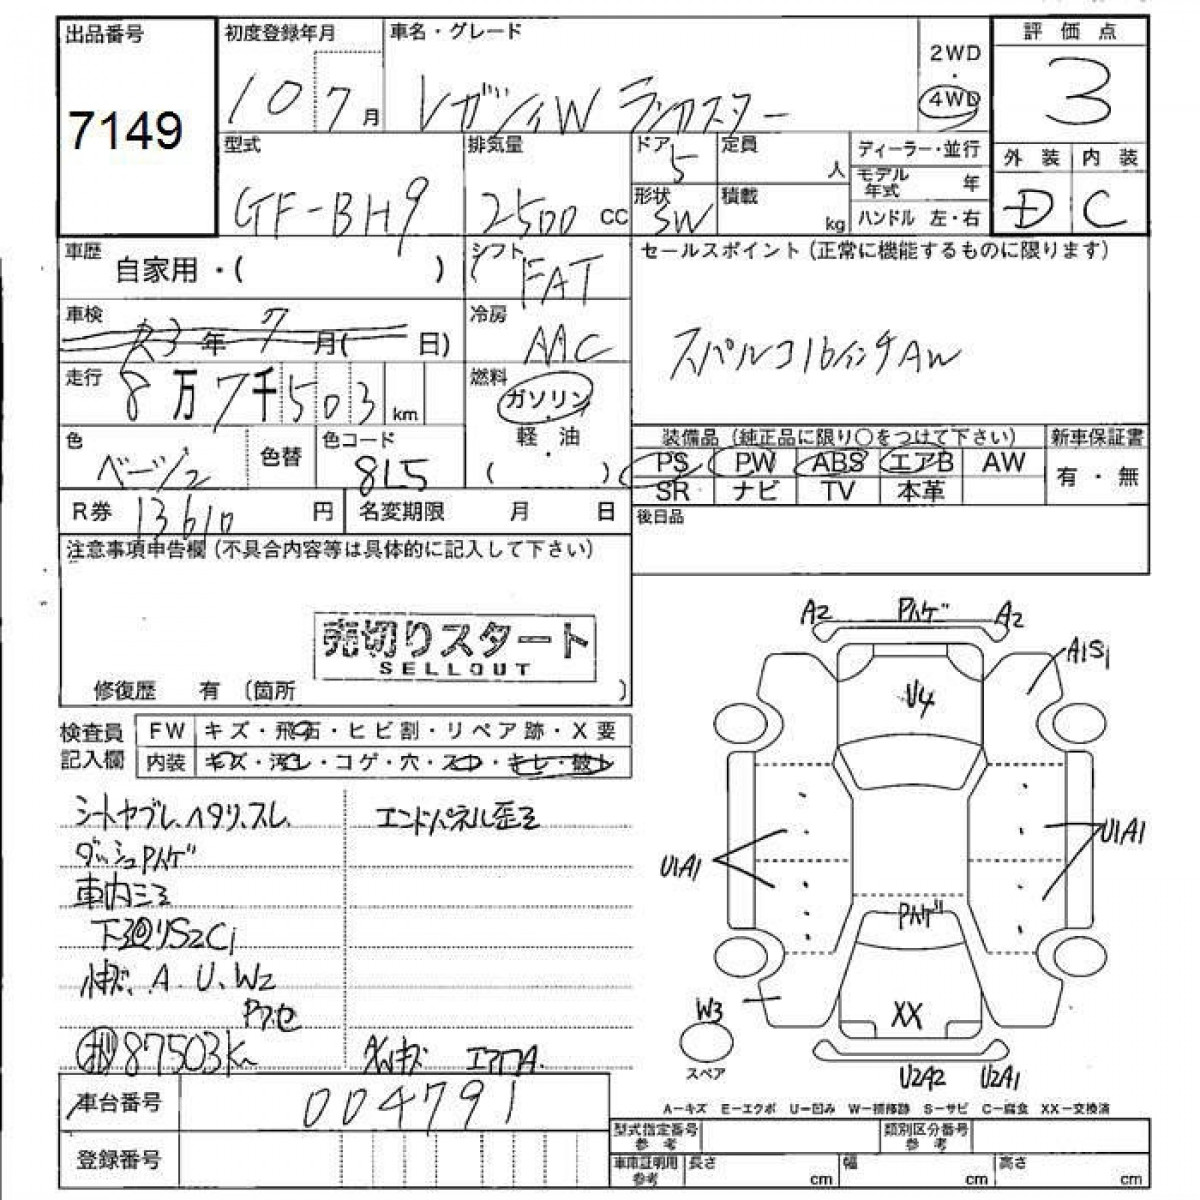 出品番号
7149
初度登録年月
10 7月
車名・グレード
レガシィW ランカスター
2WD
・
4WD
評価点
3
外装 内装
D C
型式
GF-BH9
排気量
2500 CC
ドア
5
定員
人
形状
SW
積載
kg
ディーラー・並行
モデル年式 年
ハンドル 左・右
車歴
自家用・( )
シフト
FAT
セールスポイント(正常に機能するものに限ります)
スバルコ16インチAW
車検
23年 7月( 日)
冷房
AAC
走行
8万7千503 km
燃料
ガソリン
・
軽油
・
( )
色
ベージュ
色替
色コード
8L5
装備品(純正品に限り○をつけて下さい)
新車保証書
PS PW ABS エアB AW
有・無
SR ナビ TV 本革
R券 13610 円
名変期限 月 日
後日品
注意事項申告欄(不具合内容等は具体的に記入して下さい)
売切りスタート
SELLOUT
修復歴 有 〔箇所 〕
検査員
記入欄
FW キズ・飛石・ヒビ割・リペア跡・X要
内装 キズ・汚れ・コゲ・穴・スレ・キレ・破れ
シートヤブレ、ヘタリ、スレ
エンドパネル歪ミ
ダッシュハゲ
車内ゴミ
下廻リS2C1
小キズ、A、U、W2
87503Km
A2 ハゲ A2
A1S1
U4
U1A1
U1A1
ハゲ
W3
XX
スペア
U2A2 U2A1
A−キズ E−エクボ U−凹み W−補修跡 S−サビ C−腐食 XX−交換済
車台番号 004791
登録番号
型式指定番号
参考
類別区分番号
参考
車庫証明用
参考
長さ cm
幅 cm
高さ cm